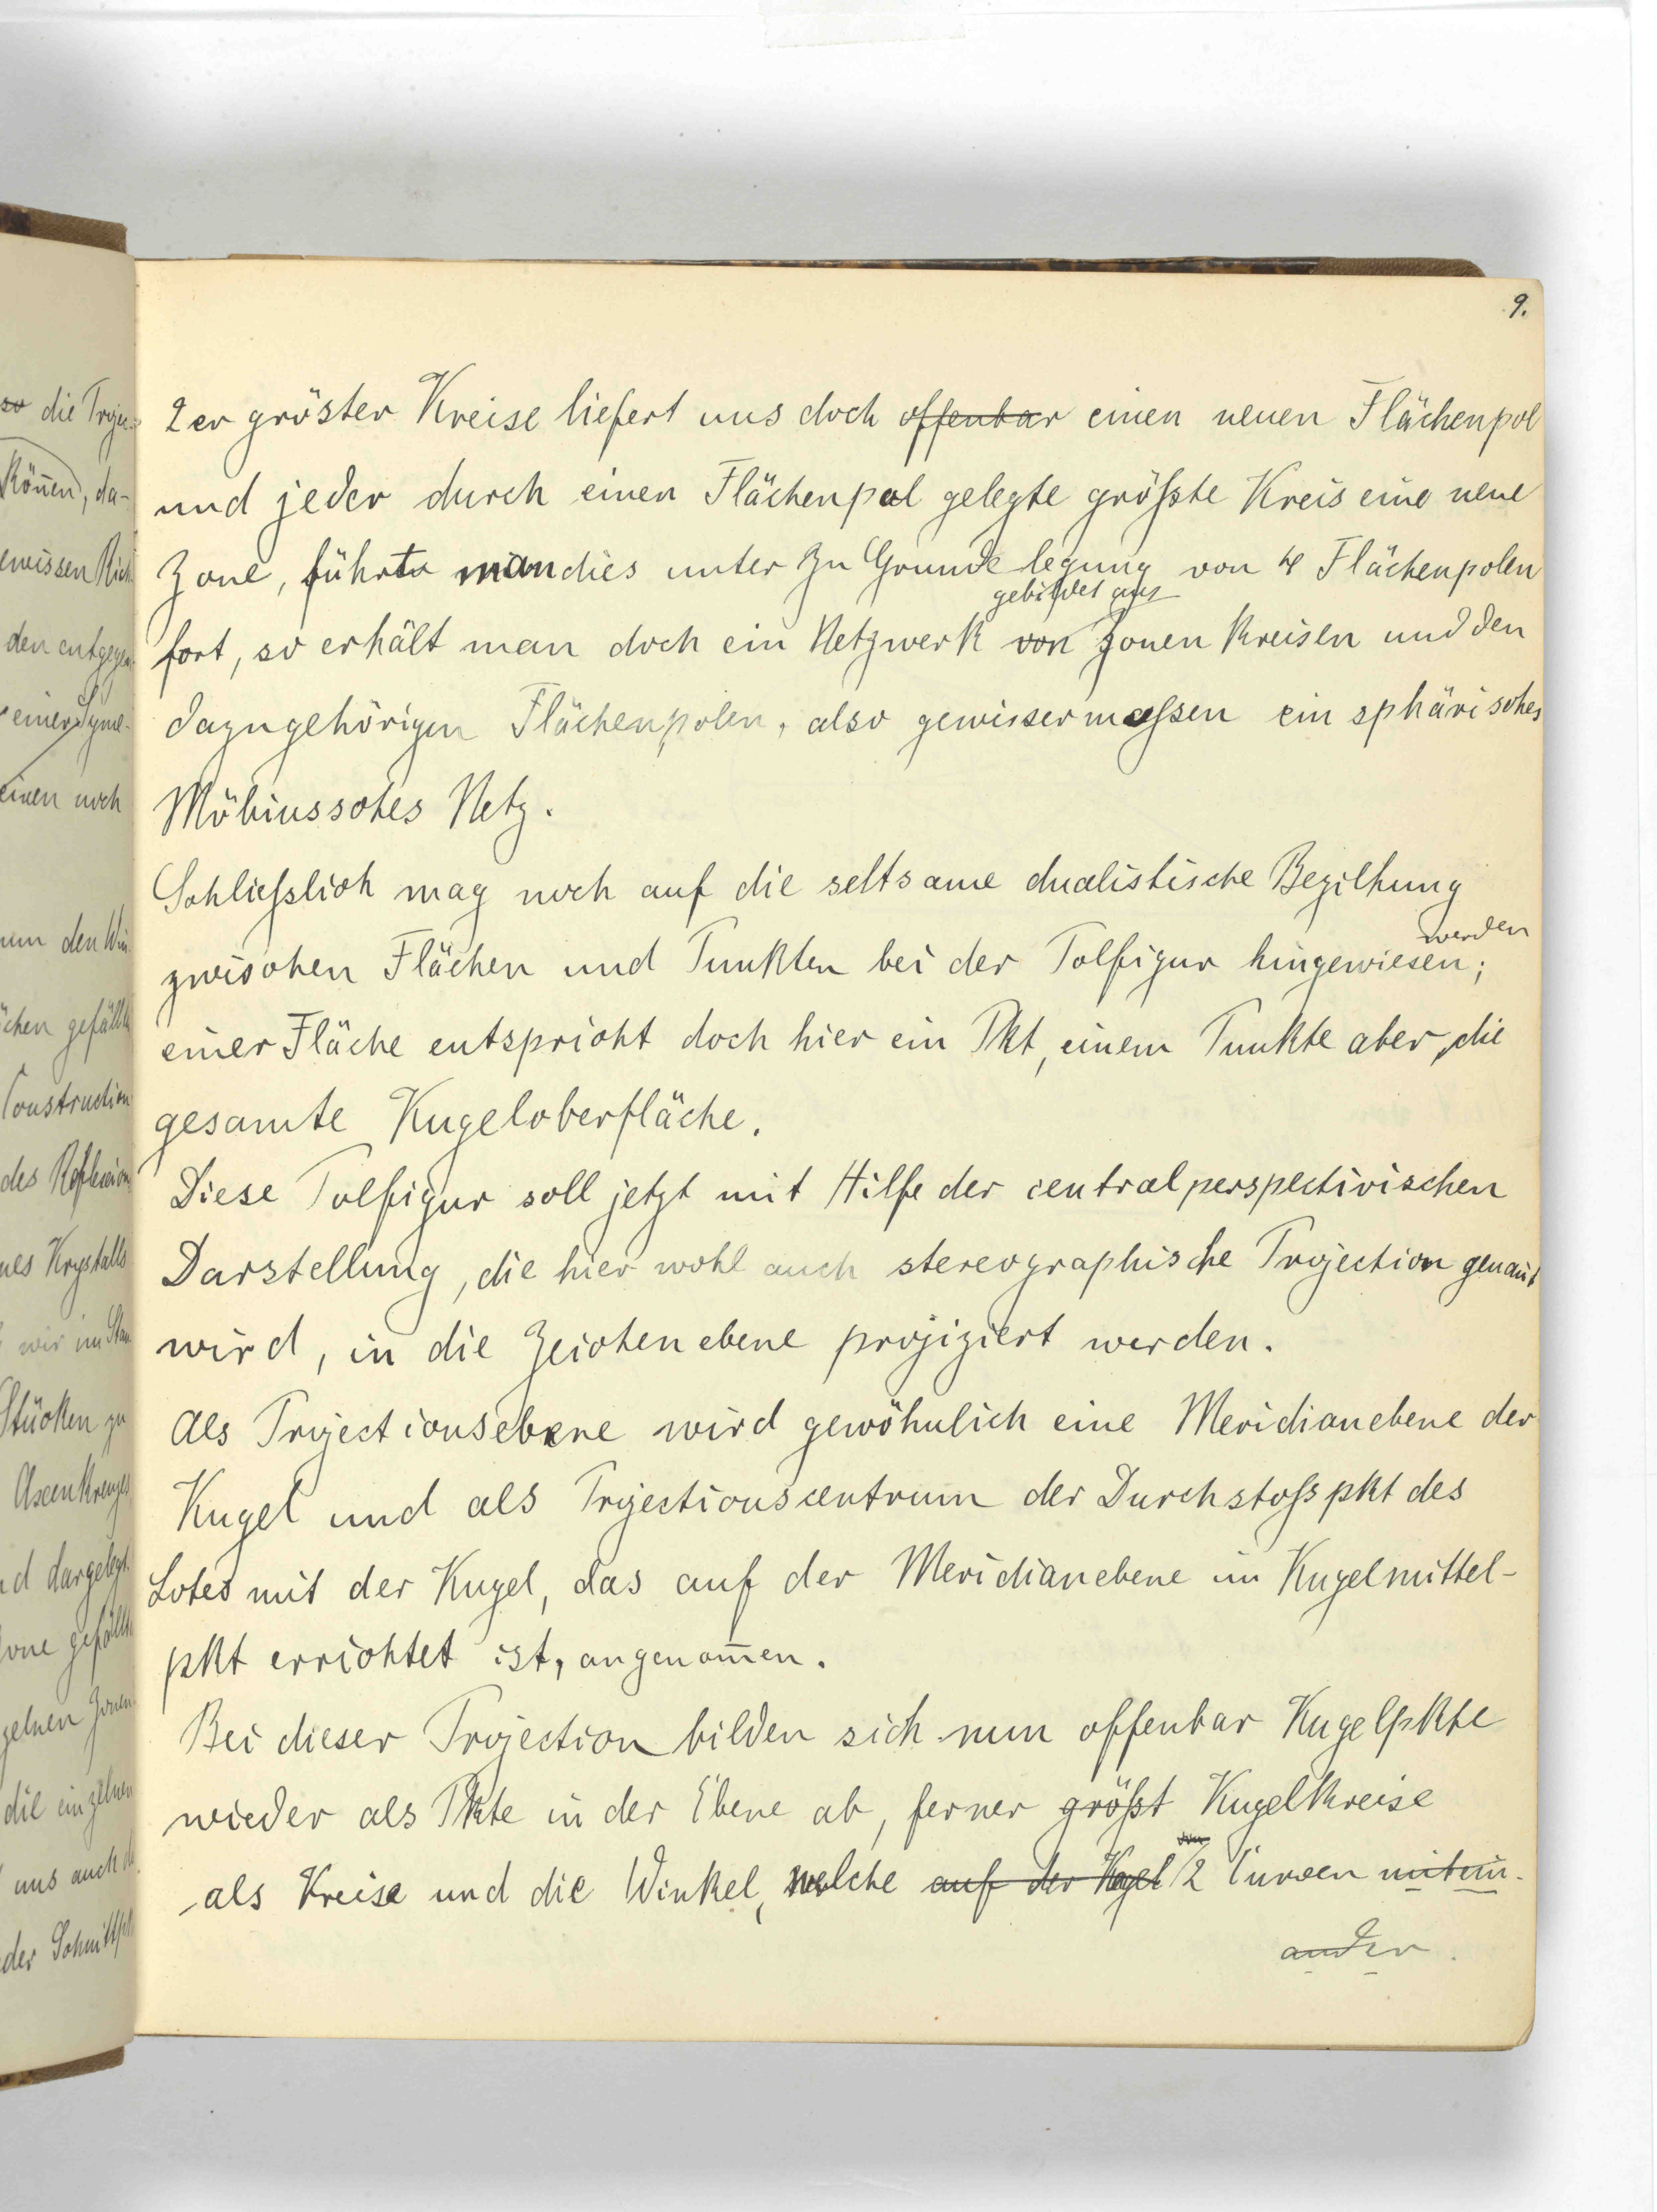 9.
2er gröster Kreise liefert uns doch offenbar einen neuen Flächenpol
und jeder durch einen Flächenpol gelegte größte Kreis eine neue
Zone, führte man dies unter Zu Grunde legung von 4 Flächenpolen
gebildet aus
fort, so erhält man doch ein Netzwerk von Zonen Kreisen und den
dazugehörigen Flächenpolen, also gewissermaßen ein sphärisches
Möbiussches Netz.
Schließlich mag noch auf die seltsame dualistische Beziehung
werden
zwischen Flächen und Punkten bei der Polfigur hingewiesen;
einer Fläche entspricht doch hier ein Pkt, einem Punkte aber, die
gesamte Kugeloberfläche.
Diese Polfigur soll jetzt mit Hilfe der centralperspectivischen
Darstellung, die hier wohl auch stereographische Projection genan̄t
wird, in die Zeichenebene projiziert werden.
Als Projectionsebene wird gewöhnlich eine Meridianebene der
Kugel und als Projectionscentrum der Durchstoßpkt des
Lotes mit der Kugel, das auf der Meridianebene im Kugelmittel-
pkt errichtet ist, angenom̄en.
Bei dieser Projection bilden sich nun offenbar Kugelpkte
wieder als Pkte in der Ebene ab, ferner größt Kugelkreise
von
als Kreise und die Winkel, welche auf der Kugel 2 Curven mitein-
ander.
so die Projec-
kön̄en, da-
den entgegen
einer Syme-
einen noch
um den Win-
Construction
des Reflexion
nes Krystalls
wir im Stan
Stücken zu
Axenkreuzes
dargelegt.
zelnen Zonen
die einzelnen
uns auch
der Schnittpkt